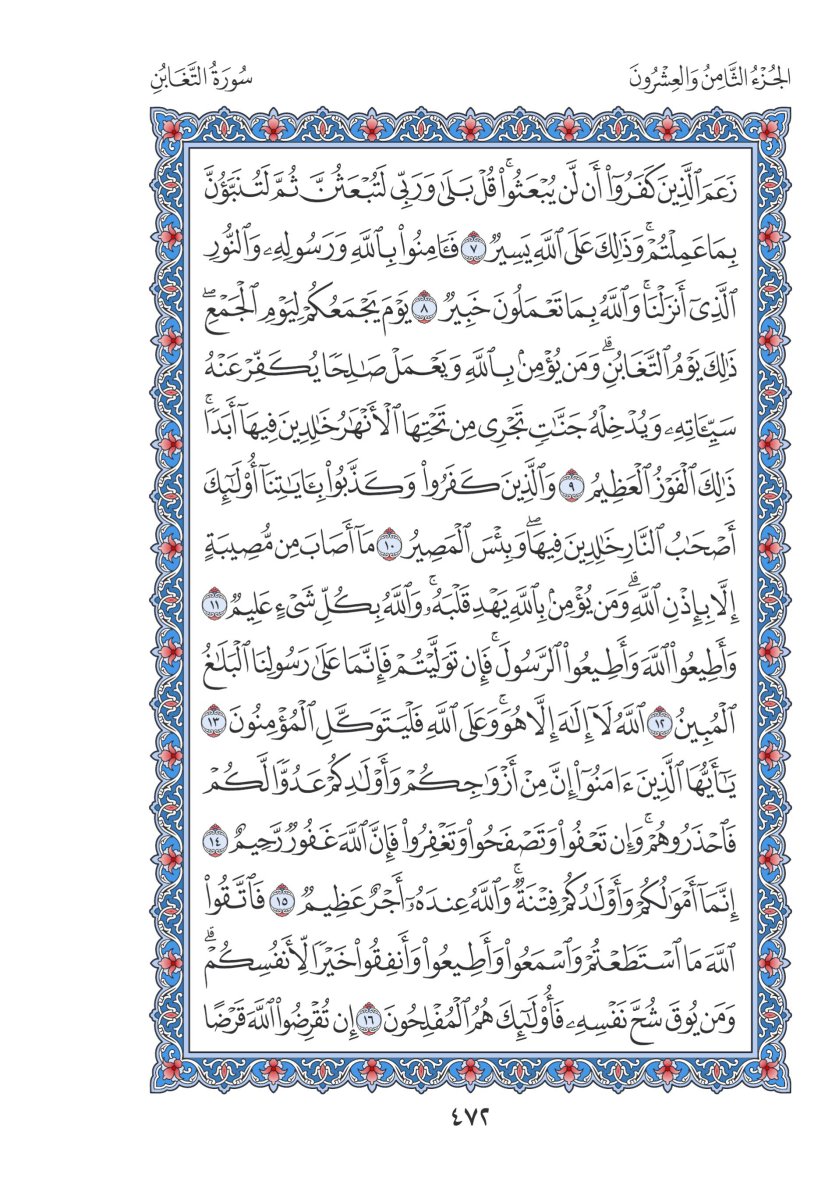 الجُزْءُ الثَّامِنُ وَالعِشْرُونَ
سُورَةُ التَّغَابُنِ
زَعَمَ ٱلَّذِينَ كَفَرُوٓا۟ أَن لَّن يُبْعَثُوا۟ۚ قُلْ بَلَىٰ وَرَبِّى لَتُبْعَثُنَّ ثُمَّ لَتُنَبَّؤُنَّ
بِمَا عَمِلْتُمْۚ وَذَٰلِكَ عَلَى ٱللَّهِ يَسِيرٌ ٧ فَـَٔامِنُوا۟ بِٱللَّهِ وَرَسُولِهِۦ وَٱلنُّورِ
ٱلَّذِىٓ أَنزَلْنَاۚ وَٱللَّهُ بِمَا تَعْمَلُونَ خَبِيرٌ ٨ يَوْمَ يَجْمَعُكُمْ لِيَوْمِ ٱلْجَمْعِۖ
ذَٰلِكَ يَوْمُ ٱلتَّغَابُنِۗ وَمَن يُؤْمِنۢ بِٱللَّهِ وَيَعْمَلْ صَـٰلِحًا يُكَفِّرْ عَنْهُ
سَيِّـَٔاتِهِۦ وَيُدْخِلْهُ جَنَّـٰتٍ تَجْرِى مِن تَحْتِهَا ٱلْأَنْهَـٰرُ خَـٰلِدِينَ فِيهَآ أَبَدًاۚ
ذَٰلِكَ ٱلْفَوْزُ ٱلْعَظِيمُ ٩ وَٱلَّذِينَ كَفَرُوا۟ وَكَذَّبُوا۟ بِـَٔايَـٰتِنَآ أُو۟لَـٰٓئِكَ
أَصْحَـٰبُ ٱلنَّارِ خَـٰلِدِينَ فِيهَاۖ وَبِئْسَ ٱلْمَصِيرُ ١٠ مَآ أَصَابَ مِن مُّصِيبَةٍ
إِلَّا بِإِذْنِ ٱللَّهِۗ وَمَن يُؤْمِنۢ بِٱللَّهِ يَهْدِ قَلْبَهُۥۚ وَٱللَّهُ بِكُلِّ شَىْءٍ عَلِيمٌ ١١
وَأَطِيعُوا۟ ٱللَّهَ وَأَطِيعُوا۟ ٱلرَّسُولَۚ فَإِن تَوَلَّيْتُمْ فَإِنَّمَا عَلَىٰ رَسُولِنَا ٱلْبَلَـٰغُ
ٱلْمُبِينُ ١٢ ٱللَّهُ لَآ إِلَـٰهَ إِلَّا هُوَۚ وَعَلَى ٱللَّهِ فَلْيَتَوَكَّلِ ٱلْمُؤْمِنُونَ ١٣
يَـٰٓأَيُّهَا ٱلَّذِينَ ءَامَنُوٓا۟ إِنَّ مِنْ أَزْوَٰجِكُمْ وَأَوْلَـٰدِكُمْ عَدُوًّا لَّكُمْ
فَٱحْذَرُوهُمْۚ وَإِن تَعْفُوا۟ وَتَصْفَحُوا۟ وَتَغْفِرُوا۟ فَإِنَّ ٱللَّهَ غَفُورٌ رَّحِيمٌ ١٤
إِنَّمَآ أَمْوَٰلُكُمْ وَأَوْلَـٰدُكُمْ فِتْنَةٌۚ وَٱللَّهُ عِندَهُۥٓ أَجْرٌ عَظِيمٌ ١٥ فَٱتَّقُوا۟
ٱللَّهَ مَا ٱسْتَطَعْتُمْ وَٱسْمَعُوا۟ وَأَطِيعُوا۟ وَأَنفِقُوا۟ خَيْرًا لِّأَنفُسِكُمْۗ
وَمَن يُوقَ شُحَّ نَفْسِهِۦ فَأُو۟لَـٰٓئِكَ هُمُ ٱلْمُفْلِحُونَ ١٦ إِن تُقْرِضُوا۟ ٱللَّهَ قَرْضًا
٤٧٢